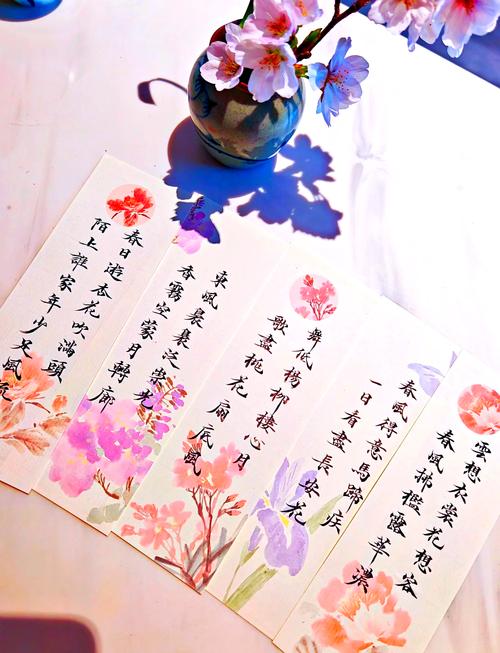 雲想衣裳花想容
春風拂檻露華濃
春風得意馬蹄疾
一日看盡長安花
舞低楊柳樓心月
歌盡桃花扇底風
東風裊裊泛崇光
香霧空蒙月轉廊
春日遊杏花吹滿頭
陌上誰家年少足風流